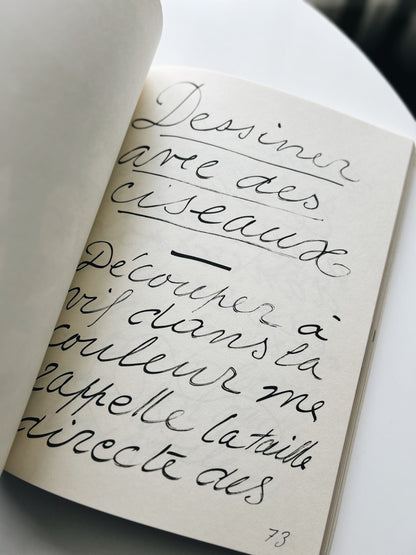 Dessiner
avec des
ciseaux
Découper à
vif dans la
couleur me
rappelle la taille
directe des
73